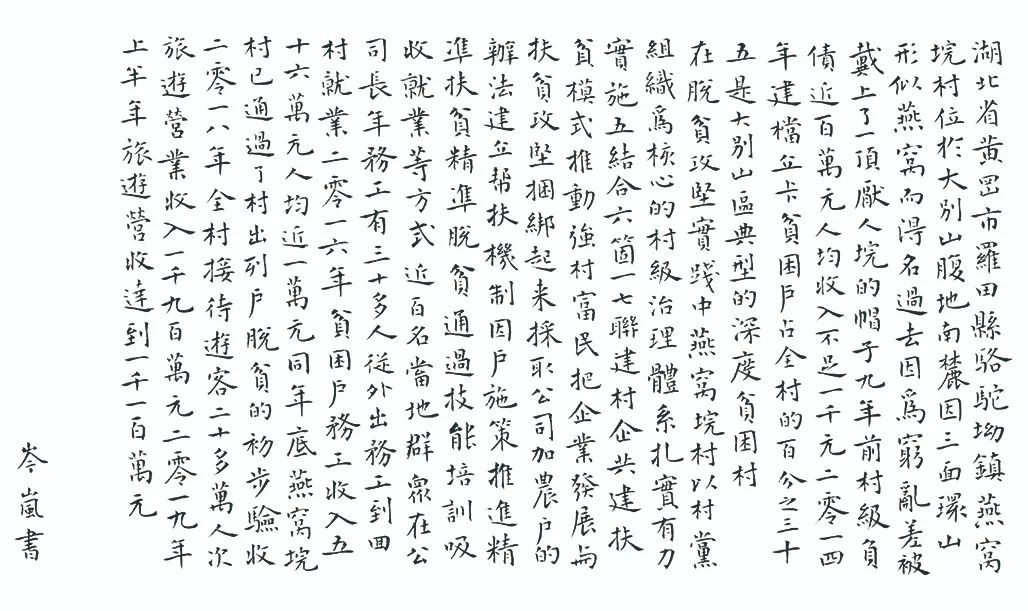 湖北省黄岡市羅田縣駱駝坳鎮燕窩
垸村位於大别山腹地南麓因三面環山
形似燕窩而得名過去因爲窮亂差被
戴上了一頂厭人垸的帽子九年前村級負
債近百萬元人均收入不足一千元二零一四
年建檔立卡貧困戶占全村的百分之三十
五是大别山區典型的深度貧困村
在脫貧攻堅實踐中燕窩垸村以村黨
組織爲核心的村級治理體系扎實有力
實施五結合六箇一七聯建村企共建扶
貧模式推動強村富民把企業發展与
扶貧攻堅捆綁起来採取公司加農戶的
辦法建立帮扶機制因戶施策推進精
準扶貧精準脫貧通過技能培訓吸
收就業等方式近百名當地群眾在公
司長年務工有三十多人從外出務工到回
村就業二零一六年貧困戶務工收入五
十六萬元人均近一萬元同年底燕窩垸
村已通過了村出列戶脫貧的初步驗收
二零一八年全村接待遊客二十多萬人次
旅遊營業收入一千九百萬元二零一九年
上半年旅遊營收達到一千一百萬元
岑嵐書